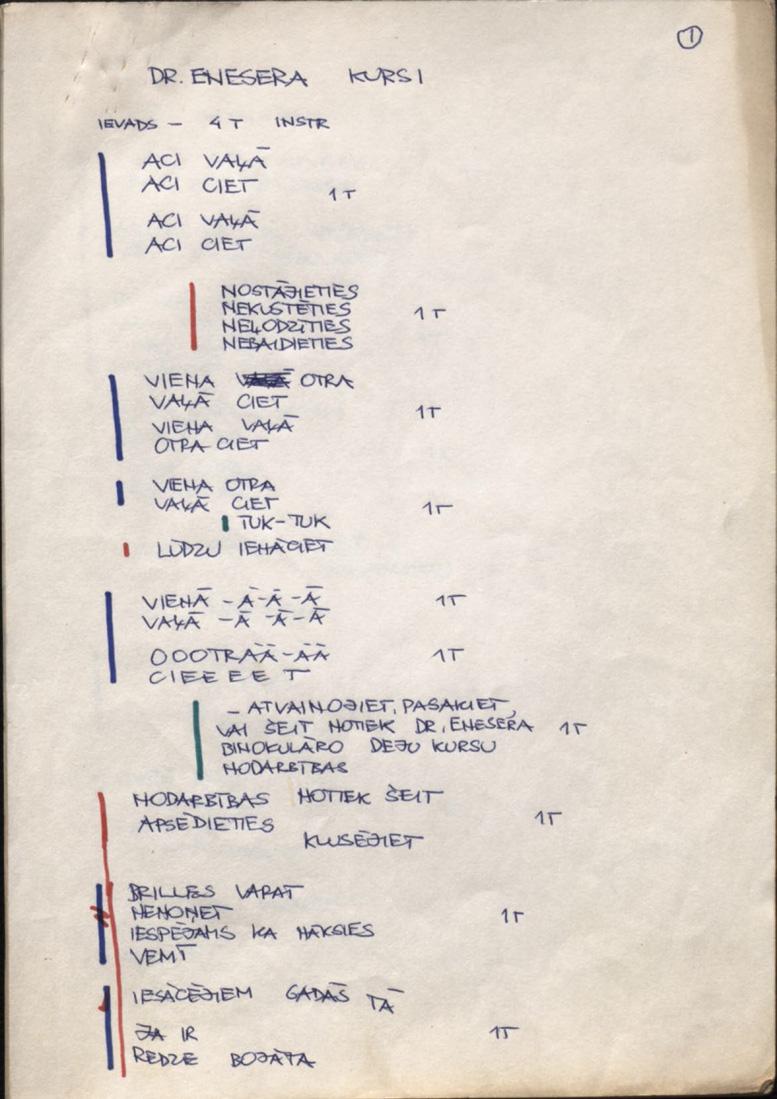 1
DR. ENESERA KURSI
IEVADS – 4 T INSTR
ACI VAĻĀ
ACI CIET
1T
ACI VAĻĀ
ACI CIET
NOSTĀJIETIES
NEKUSTĒTIES
1T
NEĻODZĪTIES
NEBAIDIETIES
VIENA OTRA
VAĻĀ CIET
1T
VIENA VAĻĀ
OTRA CIET
VIENA OTRA
VAĻĀ CIET 1T
TUK-TUK
LŪDZU IENĀCIET
VIENĀ -Ā-Ā-Ā 1T
VAĻĀ -Ā-Ā-Ā
OOOTRAĀ-ĀĀ 1T
CIEEEET
– ATVAINOJIET, PASAKIET,
VAI ŠEIT NOTIEK DR. ENESERA 1T
BINOKULĀRO DEJU KURSU
NODARBĪBAS
NODARBĪBAS NOTIEK ŠEIT
APSĒDIETIES 1T
KLUSĒJIET
BRILLES VARAT
NENOŅET 1T
IESPĒJAMS KA NĀKSIES
VEMT
IESĀCĒJIEM GADĀS TĀ
JA IR 1T
REDZE BOJĀTA